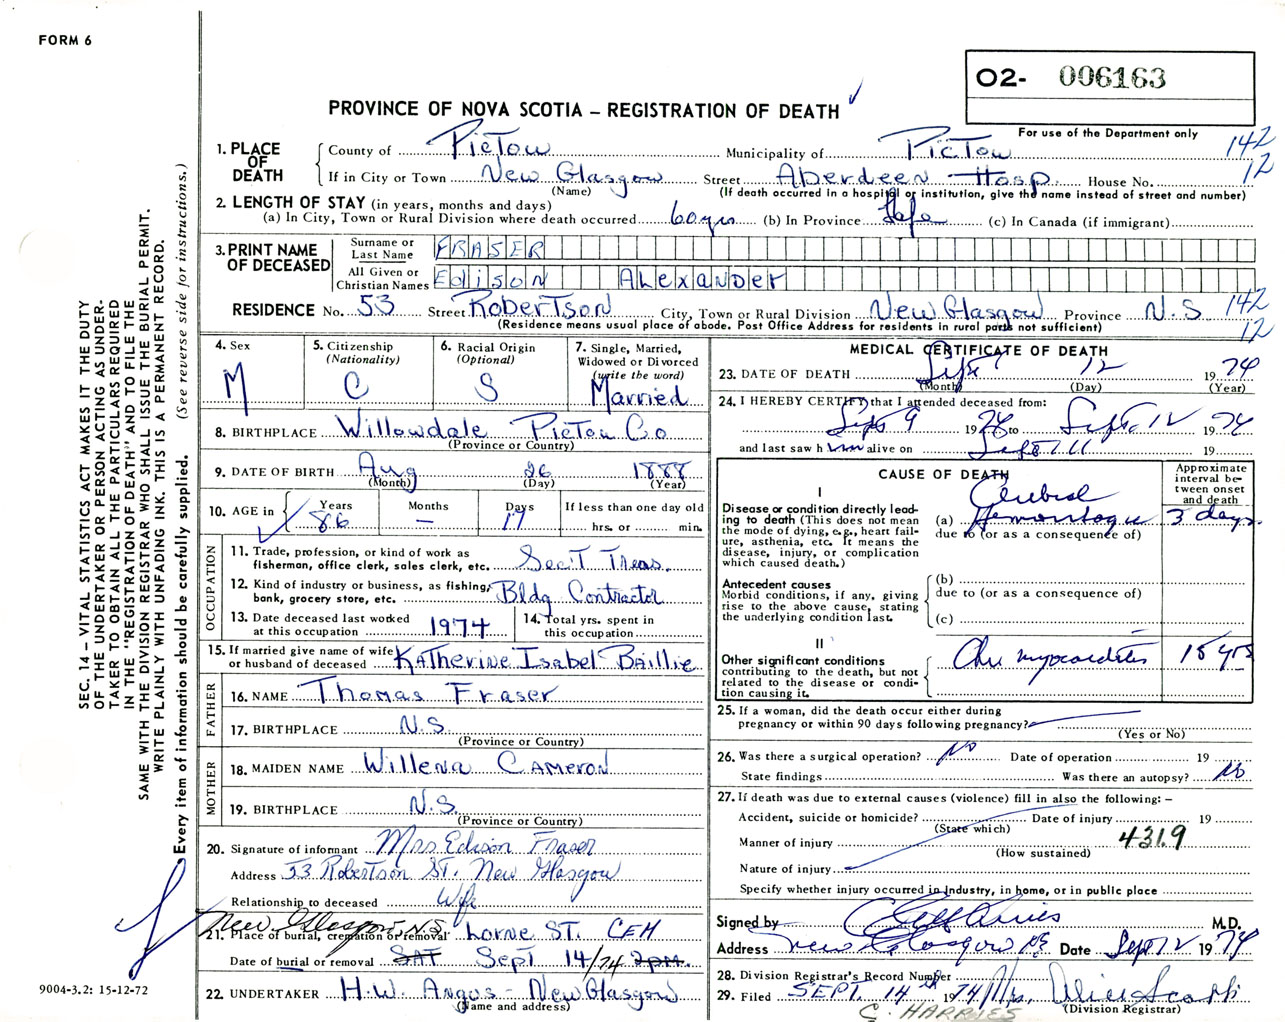 FORM 6
O2- 006163
PROVINCE OF NOVA SCOTIA – REGISTRATION OF DEATH
For use of the Department only
1. PLACE OF DEATH
County of Pictou Municipality of Pictou 142
If in City or Town New Glasgow Street Aberdeen Hosp. House No. 12
(Name) (If death occurred in a hospital or institution, give the name instead of street and number)
2. LENGTH OF STAY (in years, months and days)
(a) In City, Town or Rural Division where death occurred 60 yrs (b) In Province Life (c) In Canada (if immigrant)
3. PRINT NAME OF DECEASED
Surname or Last Name FRASER
All Given or Christian Names Edison Alexander
RESIDENCE No. 53 Street Robertson City, Town or Rural Division New Glasgow Province N.S 142
(Residence means usual place of abode. Post Office Address for residents in rural parts not sufficient) 12
4. Sex
M
5. Citizenship
(Nationality)
C
6. Racial Origin
(Optional)
S
7. Single, Married,
Widowed or Divorced
(write the word)
Married
8. BIRTHPLACE Willowdale Pictou Co
(Province or Country)
9. DATE OF BIRTH Aug 26 1888
(Month) (Day) (Year)
10. AGE in Years 86 Months — Days 17 If less than one day old
hrs. or min.
OCCUPATION
11. Trade, profession, or kind of work as
fisherman, office clerk, sales clerk, etc. Sec't Treas.
12. Kind of industry or business, as fishing,
bank, grocery store, etc. Bldg Contractor
13. Date deceased last worked
at this occupation 1974
14. Total yrs. spent in
this occupation
15. If married give name of wife
or husband of deceased Katherine Isabel Baillie
FATHER
16. NAME Thomas Fraser
17. BIRTHPLACE N.S.
(Province or Country)
MOTHER
18. MAIDEN NAME Willena Cameron
19. BIRTHPLACE N.S.
(Province or Country)
20. Signature of informant Mrs Edison Fraser
Address 53 Robertson St. New Glasgow
Relationship to deceased Wife
New Glasgow N.S.
21. Place of burial, cremation or removal Lorne St. Cem
Date of burial or removal SAT Sept 14/74 2pm.
22. UNDERTAKER H.W. Angus - New Glasgow
(Name and address)
MEDICAL CERTIFICATE OF DEATH
23. DATE OF DEATH Sept 12 1974
(Month) (Day) (Year)
24. I HEREBY CERTIFY that I attended deceased from:
Sept 9 1974 to Sept. 12 1974
and last saw him alive on Sept 11 19
CAUSE OF DEATH
Approximate interval between onset and death
I
Disease or condition directly leading to death (This does not mean the mode of dying, e.g., heart failure, asthenia, etc. It means the disease, injury, or complication which caused death.)
Cerebral
(a) Hemorrhage 3 days
due to (or as a consequence of)
Antecedent causes
Morbid conditions, if any, giving rise to the above cause, stating the underlying condition last.
(b)
due to (or as a consequence of)
(c)
II
Other significant conditions
contributing to the death, but not related to the disease or condition causing it.
Chr myocarditis 15 yrs
25. If a woman, did the death occur either during
pregnancy or within 90 days following pregnancy?
(Yes or No)
26. Was there a surgical operation? No Date of operation 19
State findings Was there an autopsy? No
27. If death was due to external causes (violence) fill in also the following: –
Accident, suicide or homicide? Date of injury 19
(State which)
Manner of injury 431.9
(How sustained)
Nature of injury
Specify whether injury occurred in industry, in home, or in public place
Signed by M.D.
Address New Glasgow NS Date Sept 12 1974
28. Division Registrar's Record Number
29. Filed SEPT. 14th 1974 Mrs.
(Division Registrar)
C. HARRIES
SEC. 14 – VITAL STATISTICS ACT MAKES IT THE DUTY
OF THE UNDERTAKER OR PERSON ACTING AS UNDER-
TAKER TO OBTAIN ALL THE PARTICULARS REQUIRED
IN THE "REGISTRATION OF DEATH" AND TO FILE THE
SAME WITH THE DIVISION REGISTRAR WHO SHALL ISSUE THE BURIAL PERMIT.
WRITE PLAINLY WITH UNFADING INK. THIS IS A PERMANENT RECORD.
Every item of information should be carefully supplied. (See reverse side for instructions.)
9004-3.2: 15-12-72